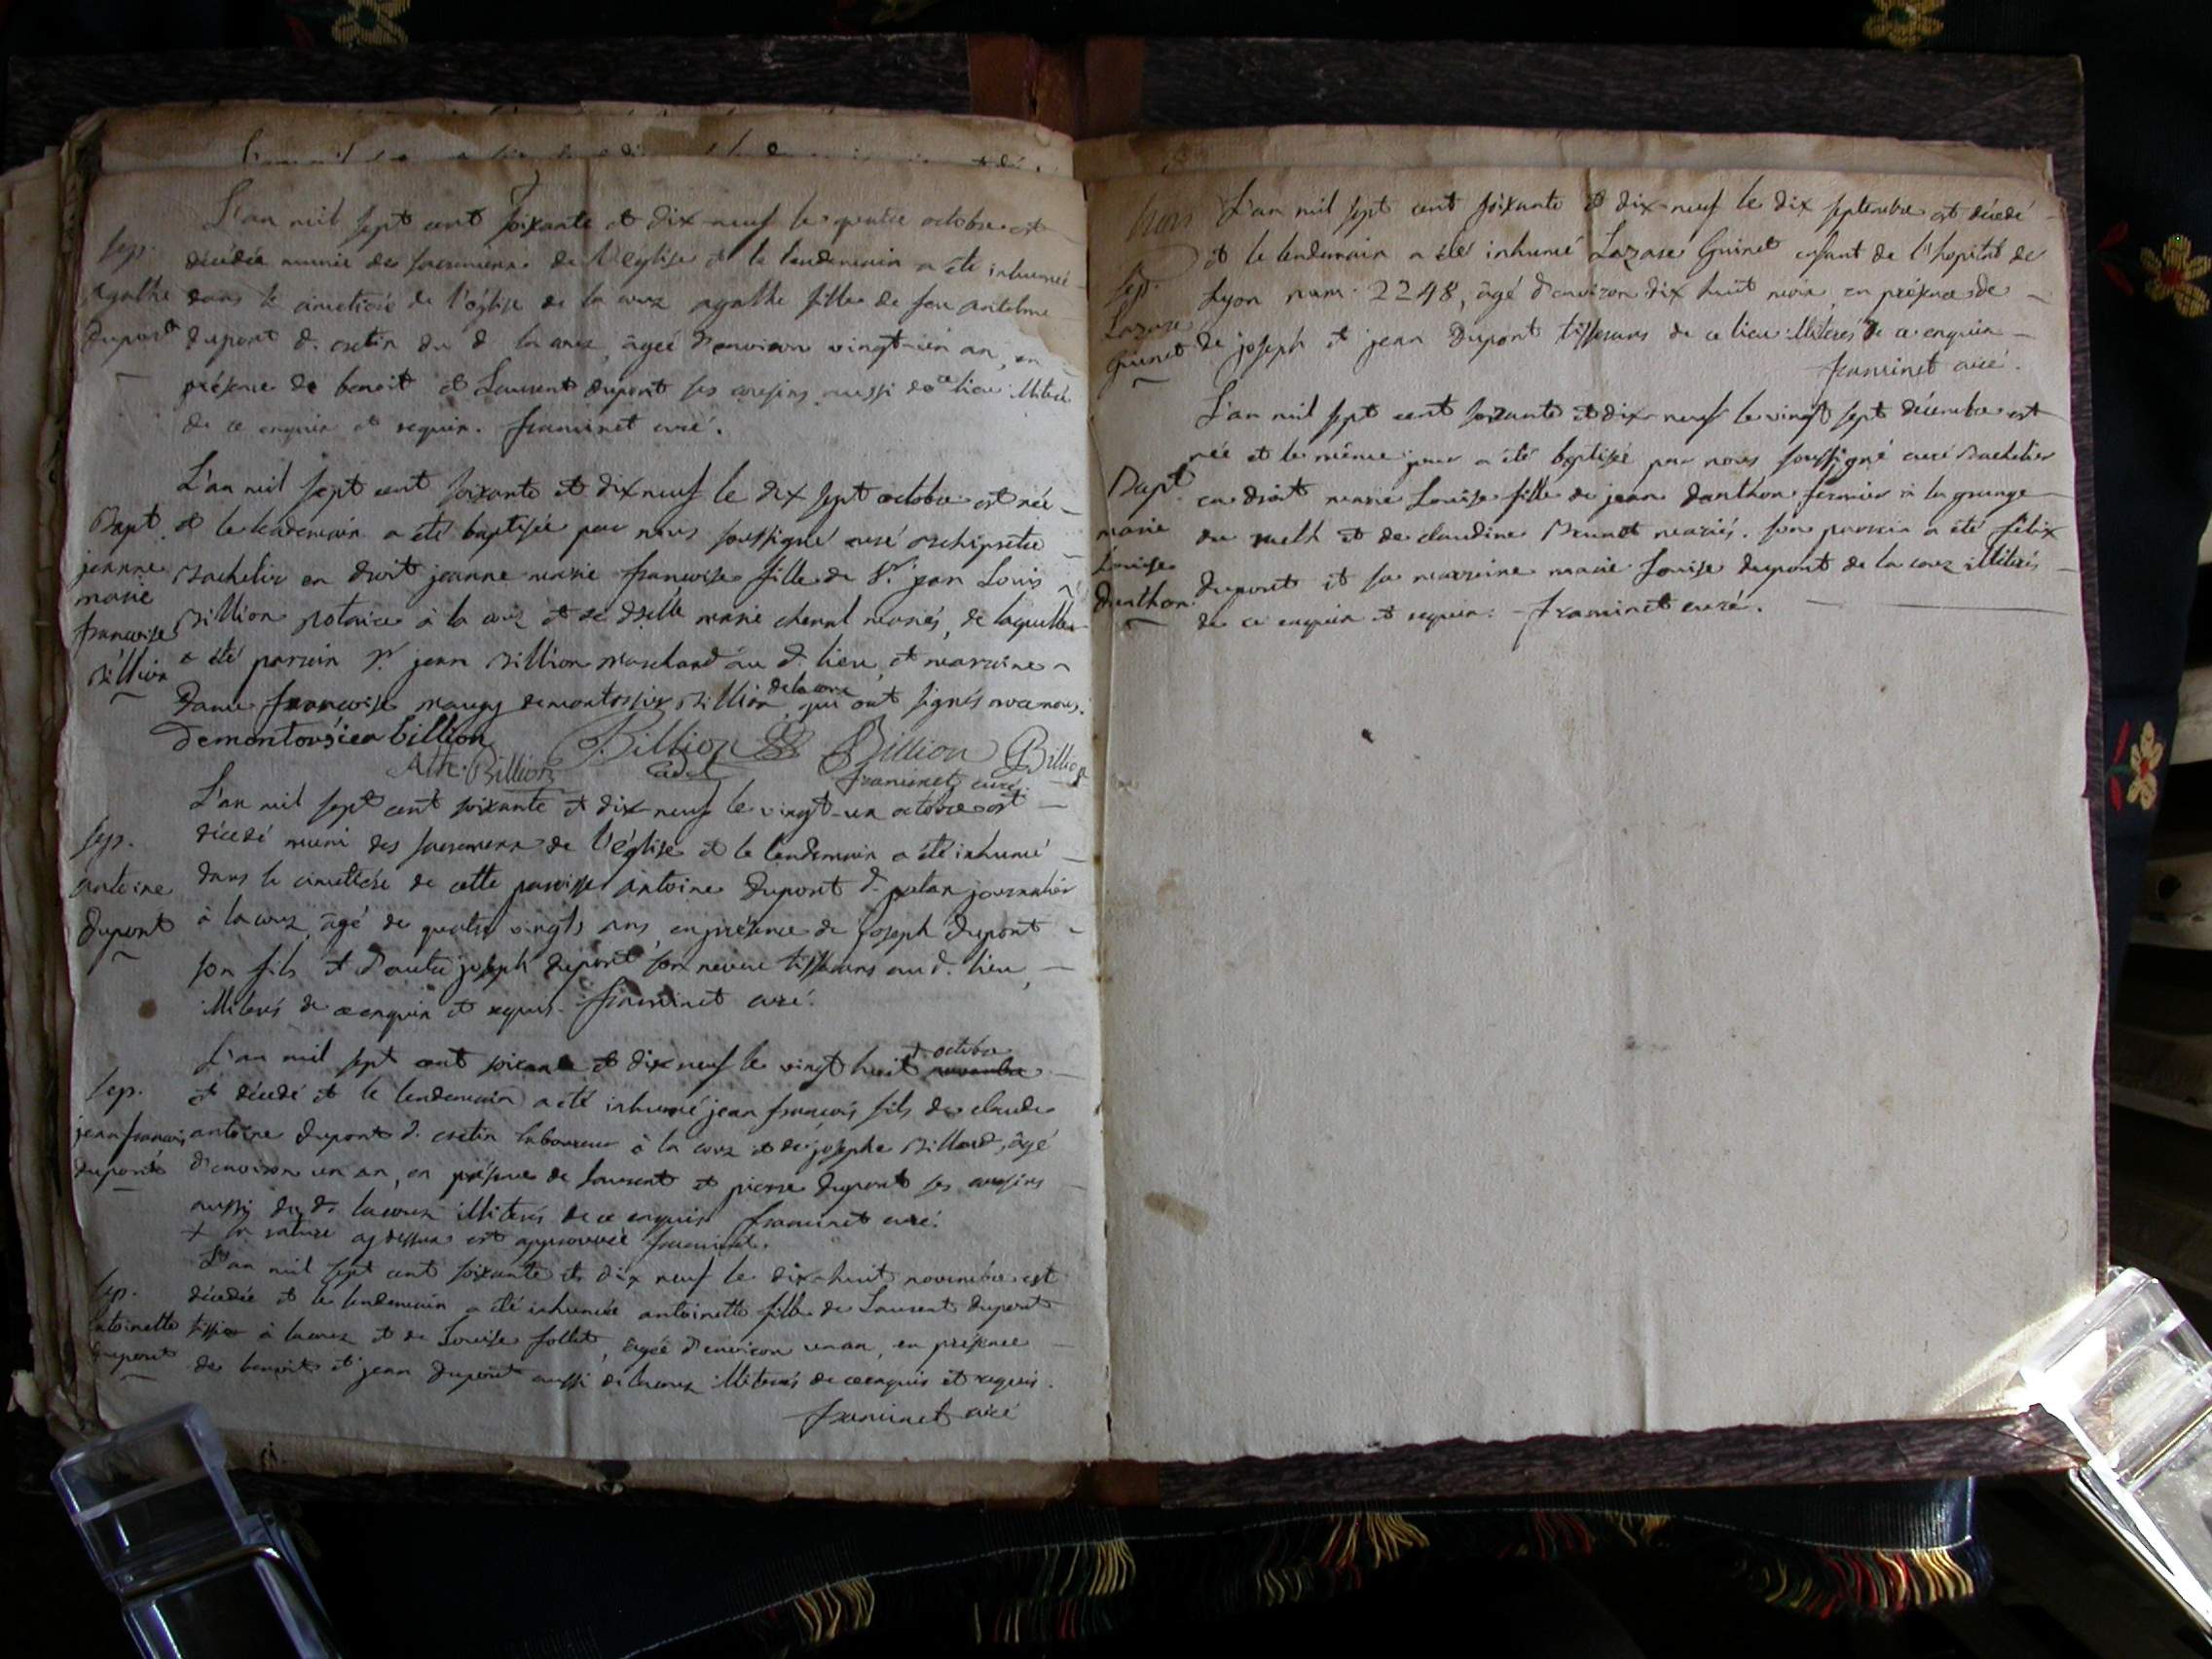 L'an mil sept cent soixante et dix-neuf le quatre octobre est
sep. décédée munie des sacremens de l'église et le lendemain a été inhumée
agathe dans le cimetiere de l'église de la courz agathe fille de feu antelme
dupont dupont d. cretin du d. la courz, âgée d'environ vingt-un an, en
présence de benoit et Laurent dupont ses cousins aussi de ce lieu illiterés
de ce enquis et requis. framinet curé.
L'an mil sept cent soixante et dix neuf le dix sept octobre est née
Bapt. et le lendemain a été baptisée par nous soussigné curé archiprêtre
jeanne Bachelier en droit jeanne marie françoise fille de Sr. jean Louis
marie
françoise Billion notaire à la courz et de dselle marie chenal mariés, de laquelle
Billion a été parrain Sr. jean Billion marchand au d. lieu, et marraine
Dame françoise demontossier Billion de la courz qui ont signés avec nous.
Demontossier billion Billion Billion Billion
Ath. Billion cadet framinet curé.
L'an mil sept cent soixante et dix-neuf le vingt-un octobre est
sep. décédé muni des sacremens de l'église et le lendemain a été inhumé
antoine dans le cimettiere de cette paroisse antoine dupont d. journalier
dupont à la courz, âgé de quatre vingts ans, en présence de joseph dupont
son fils et d'autre joseph dupont son neveu tisserans au d. lieu,
illiterés de ce enquis et requis. framinet curé.
L'an mil sept cent soixante et dix neuf le vingt huit + octobre novembre
sep. est décédé et le lendemain a été inhumé jean françois fils de claude
jean françois antoine dupont d. cretin laboureur à la courz et de josephe Billard, âgé
dupont d'environ un an, en présence de Laurent et pierre dupont ses cousins
aussi du d. la courz illiterés de ce enquis framinet curé.
+ la rature cy dessus est approuvée framinet.
L'an mil sept cent soixante et dix neuf le dix-huit novembre est
sep. décédée et le lendemain a été inhumée antoinette fille de Laurent dupont
antoinette tissier à la courz et de Louise follet, âgée d'environ un an, en présence
dupont de benoit et jean dupont aussi de la courz illiterés de ce enquis et requis.
framinet curé
L'an mil sept cent soixante et dix-neuf le dix septembre est décédé
et le lendemain a été inhumé Lazare Guinet enfant de l'hopital de
sep. Lyon num. 2248, âgé d'environ dix huit mois, en présence de
Lazare
guinet de joseph et jean Dupont tisserans de ce lieu illiterés de ce enquis
framinet curé.
L'an mil sept cent soixante et dix-neuf le vingt sept décembre est
née et le même jour a été baptisée par nous soussigné curé Bachelier
Bapt. en droit marie Louise fille de jean danthon fermier à la grange
marie du et de claudine Brunet mariés. son parrain a été félix
Louise
danthon dupont et sa marraine marie Louise dupont de la courz illiterés
de ce enquis et requis. framinet curé.